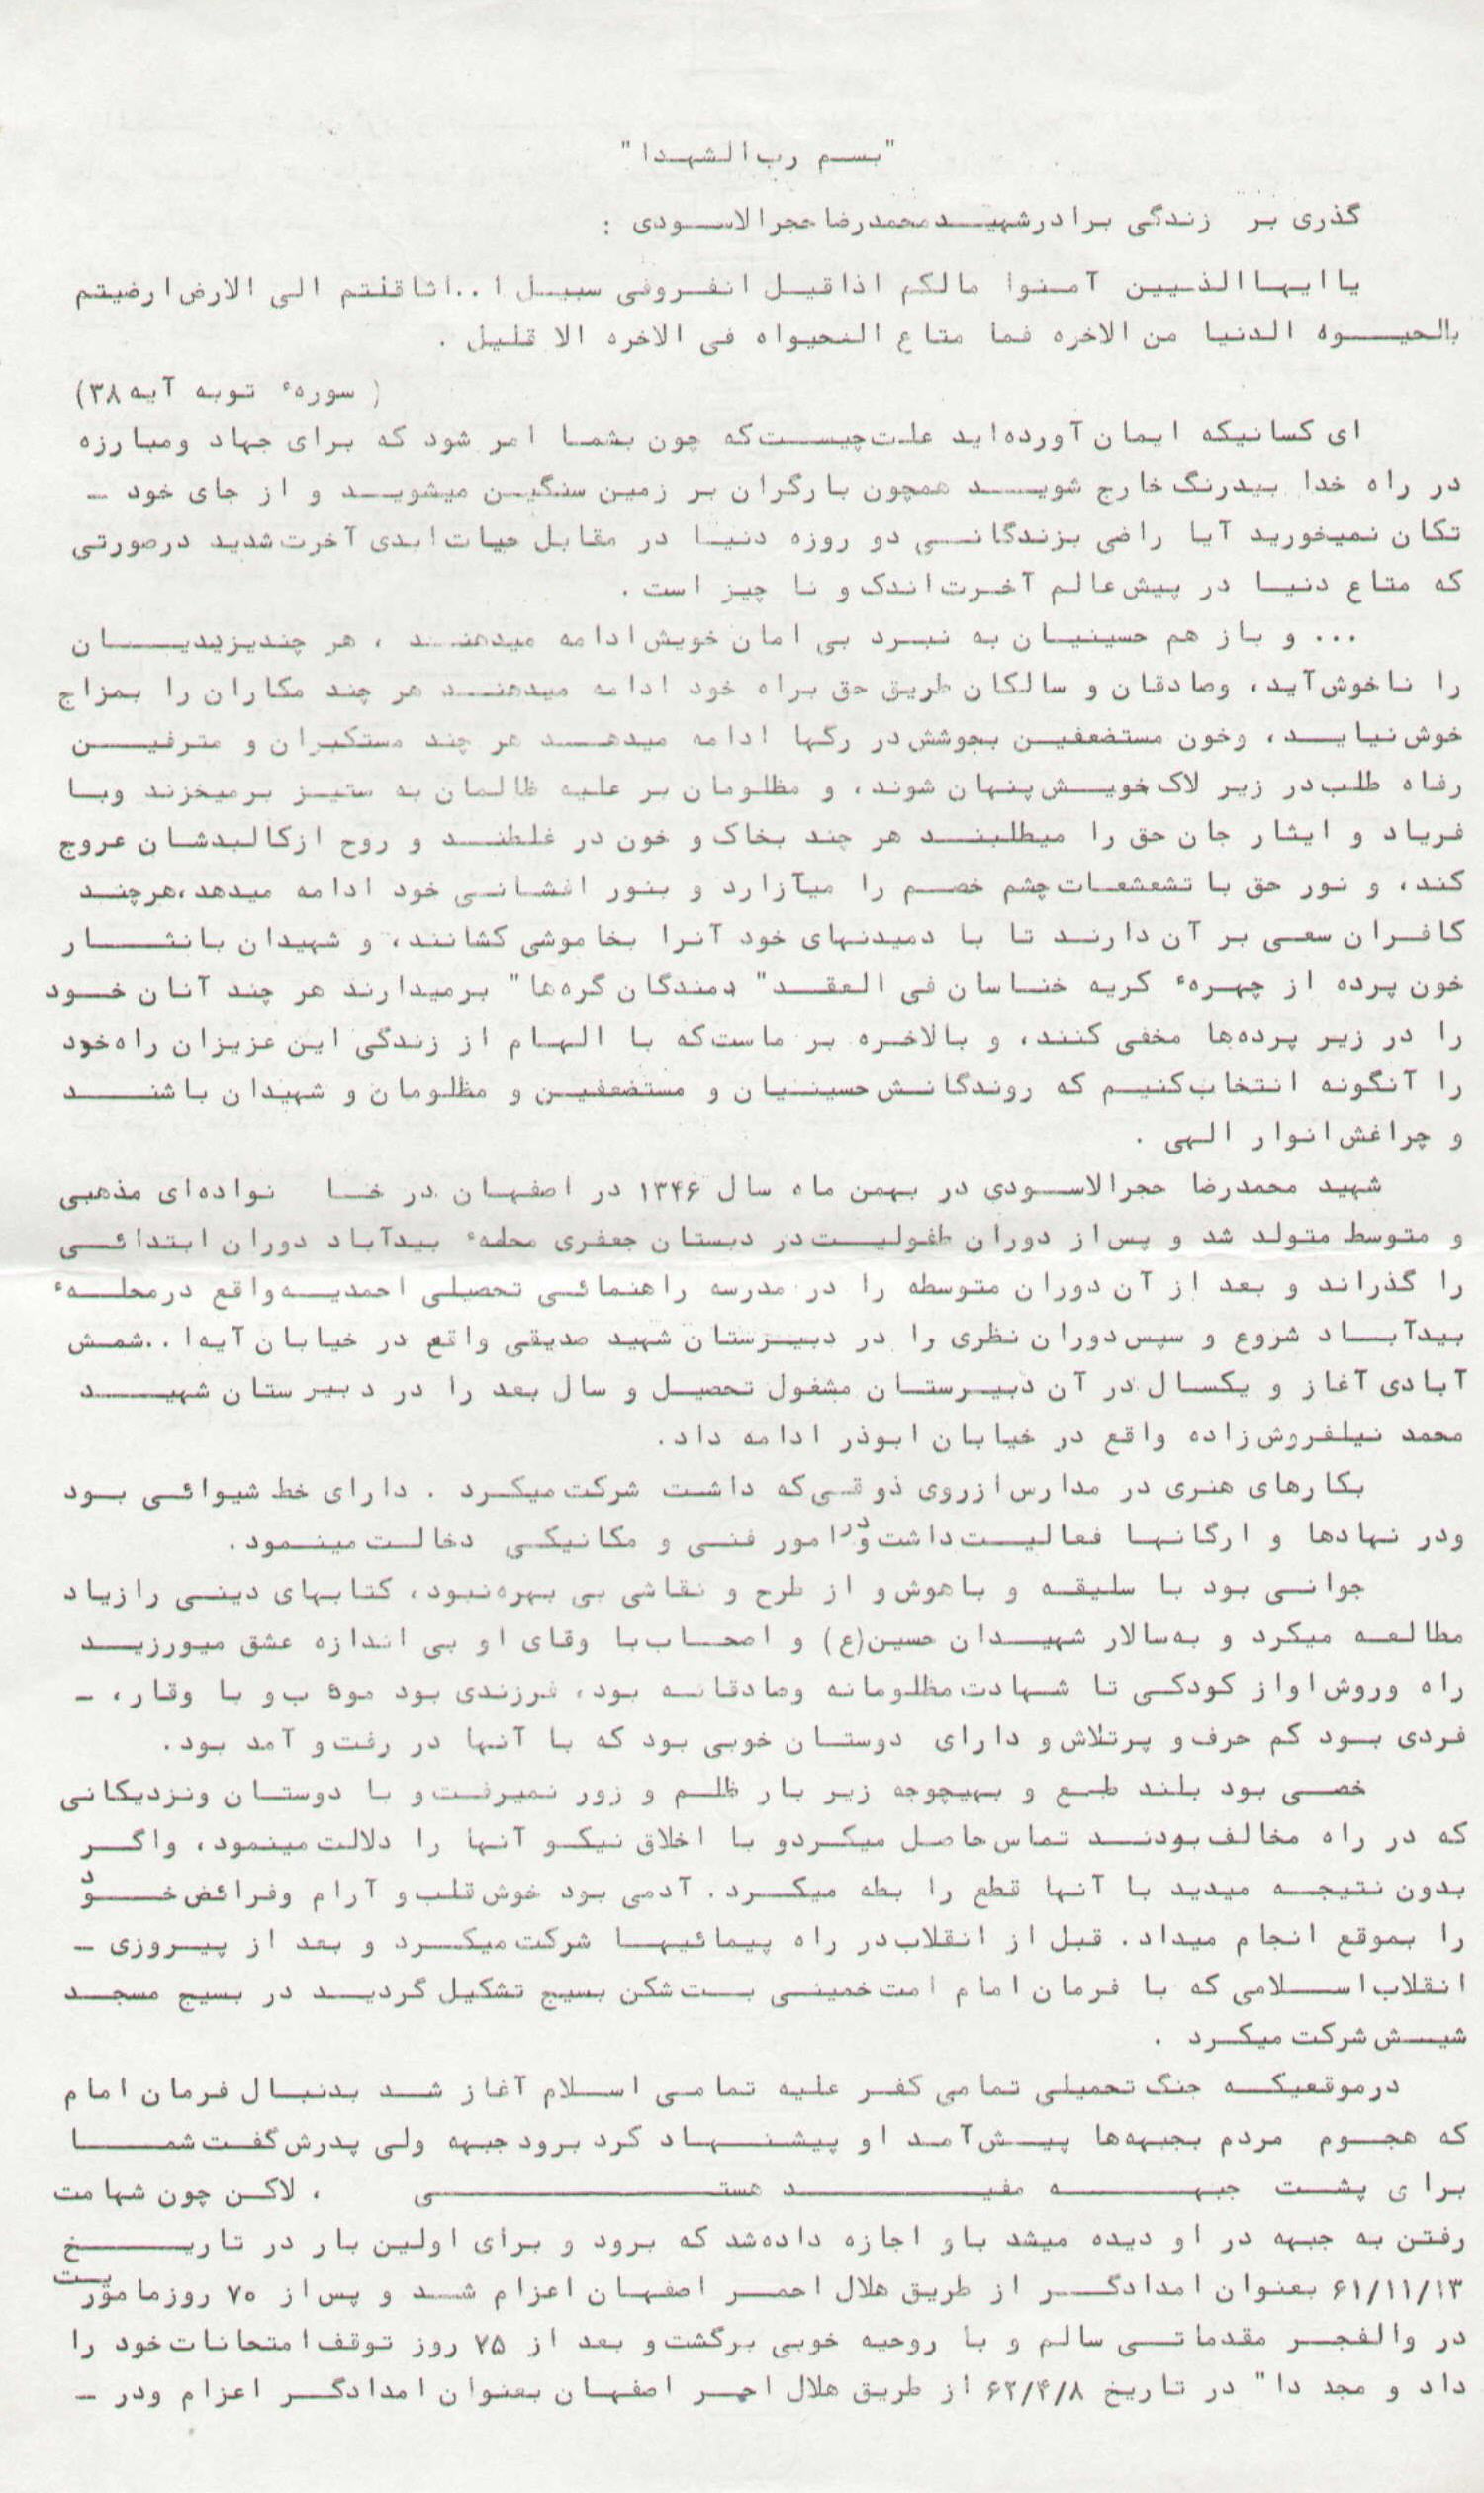 "بسم رب‌الشهدا"
گذری بر زندگی برادرشهید محمدرضا حجرالاسودی :
یا ایها الذیین آمنوا مالکم اذاقیل انفروفی سبیل ا..اثاقلتم الی الارض ارضیتم
بالحیوه الدنیا من الاخره فما متاع الحیواه فی الاخره الا قلیل .
( سورهٔ توبه آیه ۳۸)
ای کسانیکه ایمان آورده‌اید علت چیست که چون بشما امر شود که برای جهاد ومبارزه
در راه خدا بیدرنگ خارج شوید همچون بارگران بر زمین سنگین میشوید و از جای خود -
تکان نمیخورید آیا راضی بزندگانی دو روزه دنیا در مقابل حیات ابدی آخرت شدید درصورتی
که متاع دنیا در پیش عالم آخرت اندک و نا چیز است .
... و باز هم حسینیان به نبرد بی امان خویش ادامه میدهند ، هر چندیزیدیان
را ناخوش آید، وصادقان و سالکان طریق حق براه خود ادامه میدهند هر چند مکاران را بمزاج
خوش نیاید، وخون مستضعفین بجوشش در رگها ادامه میدهد هر چند مستکبران و مترفین
رفاه طلب در زیر لاک خویش پنهان شوند، و مظلومان بر علیه ظالمان به ستیز برمیخزند وبا
فریاد و ایثار جان حق را میطلبند هر چند بخاک و خون در غلطند و روح ازکالبدشان عروج
کند، و نور حق با تشعشعات چشم خصم را میآزارد و بنور افشانی خود ادامه میدهد،هرچند
کافران سعی بر آن دارند تا با دمیدنهای خود آنرا بخاموشی کشانند، و شهیدان بانثار
خون پرده از چهرهٔ کریه خناسان فی العقد" دمندگان گره‌ها" برمیدارند هر چند آنان خود
را در زیر پرده‌ها مخفی کنند، و بالاخره بر ماست که با الهام از زندگی این عزیزان راه خود
را آنگونه انتخاب کنیم که روندگانش حسینیان و مستضعفین و مظلومان و شهیدان باشند
و چراغش انوار الهی .
شهید محمدرضا حجرالاسودی در بهمن ماه سال ۱۳۴۶ در اصفهان در خا نواده‌ای مذهبی
و متوسط متولد شد و پس از دوران طفولیت در دبستان جعفری محلهٔ بیدآباد دوران ابتدائی
را گذراند و بعد از آن دوران متوسطه را در مدرسه راهنمائی تحصیلی احمدیه واقع درمحلهٔ
بیدآباد شروع و سپس دوران نظری را در دبیرستان شهید صدیقی واقع در خیابان آیه‌ا ..شمش
آبادی آغاز و یکسال در آن دبیرستان مشغول تحصیل و سال بعد را در دبیرستان شهید
محمد نیلفروش زاده واقع در خیابان ابوذر ادامه داد.
بکارهای هنری در مدارس ازروی ذوقی که داشت شرکت میکرد . دارای خط شیوائی بود
ودر نهادها و ارگانها فعالیت داشت و در امور فنی و مکانیکی دخالت مینمود.
جوانی بود با سلیقه و باهوش و از طرح و نقاشی بی بهره نبود، کتابهای دینی رازیاد
مطالعه میکرد و به‌سالار شهیدان حسین(ع) و اصحاب با وقای او بی اندازه عشق میورزید
راه وروش اواز کودکی تا شهادت مظلومانه وصادقانه بود، فرزندی بود مودٔ ب و با وقار، -
فردی بود کم حرف و پرتلاش و دارای دوستان خوبی بود که با آنها در رفت و آمد بود.
خصی بود بلند طبع و بهیچوجه زیر بار ظلم و زور نمیرفت و با دوستان ونزدیکانی
که در راه مخالف بودند تماس حاصل میکردو با اخلاق نیکو آنها را دلالت مینمود، واگر
بدون نتیجه میدید با آنها قطع را بطه میکرد. آدمی بود خوش قلب و آرام وفرائض خود
را بموقع انجام میداد. قبل از انقلاب در راه پیمائیها شرکت میکرد و بعد از پیروزی -
انقلاب اسلامی که با فرمان امام امت خمینی بت شکن بسیج تشکیل گردید در بسیج مسجد
شیش شرکت میکرد .
درموقعیکه جنگ تحمیلی تمامی کفر علیه تمامی اسلام آغاز شد بدنبال فرمان امام
که هجوم مردم بجبهه‌ها پیش آمد او پیشنهاد کرد برود جبهه ولی پدرش گفت شما
برای پشت جبهه مفید هستی ، لاکن چون شهامت
رفتن به جبهه در او دیده میشد باو اجازه داده شد که برود و برای اولین بار در تاریخ
۶۱/۱۱/۱۳ بعنوان امدادگر از طریق هلال احمر اصفهان اعزام شد و پس از ۷۰ روزماموریت
در والفجر مقدماتی سالم و با روحیه خوبی برگشت و بعد از ۷۵ روز توقف امتحانات خود را
داد و مجد دا" در تاریخ ۶۲/۴/۸ از طریق هلال احمر اصفهان بعنوان امدادگر اعزام ودر -